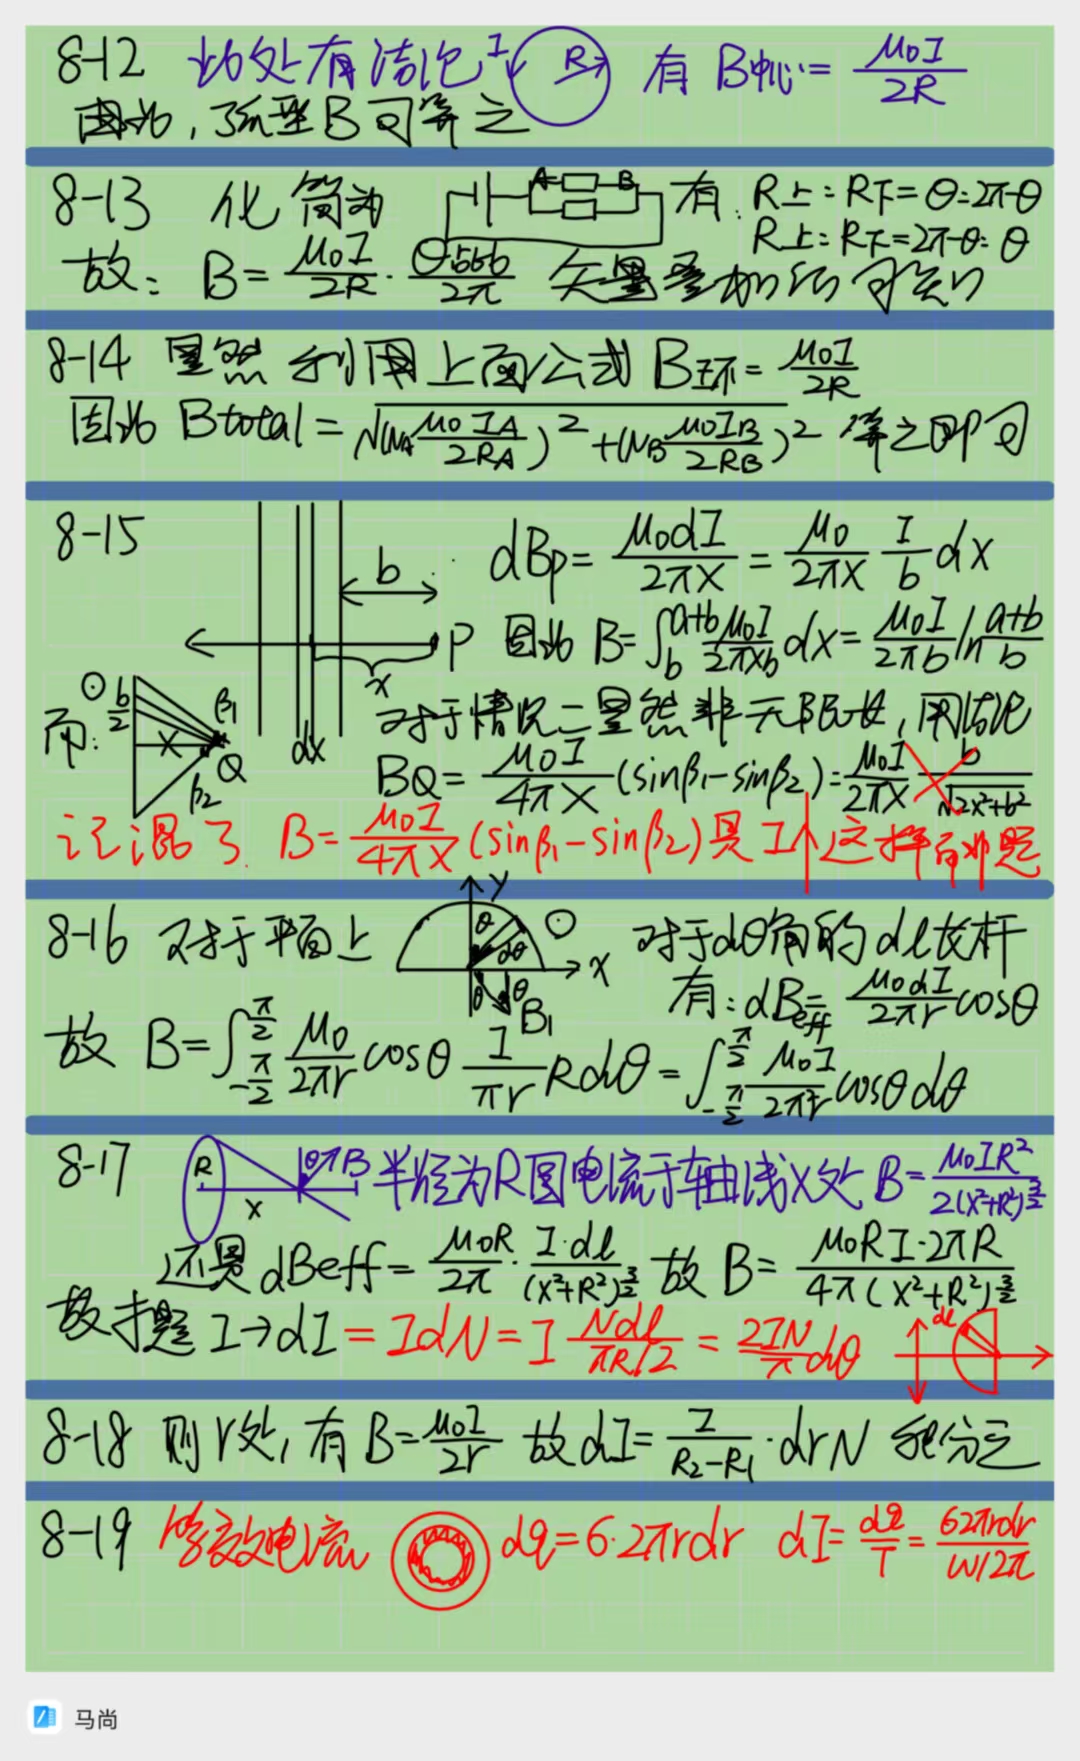 8-12 此处有结论 I R 有 B中心 = μ0I/2R
因此，弧型B可算之
8-13 化简为 A B 有: R上:R下=θ:2π-θ
R上:R下=2π-θ:θ
故: B = μ0I/2R · θ/2π 矢量叠加
8-14 显然利用上面公式 B环 = μ0I/2R
因此 Btotal = √(NA μ0IA/2RA)² + (NB μ0IB/2RB)² 算之即可
8-15 b dBp = μ0dI/2πX = μ0/2πX I/b dX
P x dx 因此 B = ∫_b^{a+b} μ0I/2πXb dX = μ0I/2πb ln (a+b)/b
而: b/2 X β1 β2 Q 对于情况二显然非无限长，用结论
BQ = μ0I/4πX (sinβ1-sinβ2) = μ0I/2πX b/√2X²+b²
记混了. B = μ0I/4πX (sinβ1-sinβ2) 是 I 这样的
8-16 对于平面上 y θ dθ x B1 对于dθ角的dl长杆
有: dBeff = μ0dI/2πr cosθ
故 B = ∫_{-π/2}^{π/2} μ0/2πr cosθ I/πr Rdθ = ∫_{-π/2}^{π/2} μ0I/2π²r cosθdθ
8-17 R x θ B 半径为R圆电流于轴线X处 B = μ0IR²/2(X²+R²)^{3/2}
还是 dBeff = μ0R/2π · I·dl/(X²+R²)^{3/2} 故 B = μ0RI·2πR/4π(X²+R²)^{3/2}
故本题 I→dI = IdN = I Ndl/πR/2 = 2IN/π dθ dl
8-18 则r处，有 B = μ0I/2r 故dI = I/R2-R1 · drN 积分之
8-19 等效电流 dq = 6·2πrdr dI = dq/T = 62πrdr/W/2π
马尚